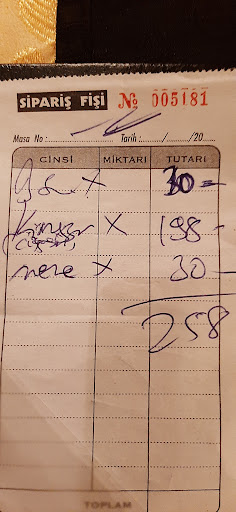 SİPARİŞ FİŞİ № 005181
Masa No : Tarih : / /20
CİNSİ MİKTARI TUTARI
X 30 =
X 198 -
X 30 -
258
TOPLAM